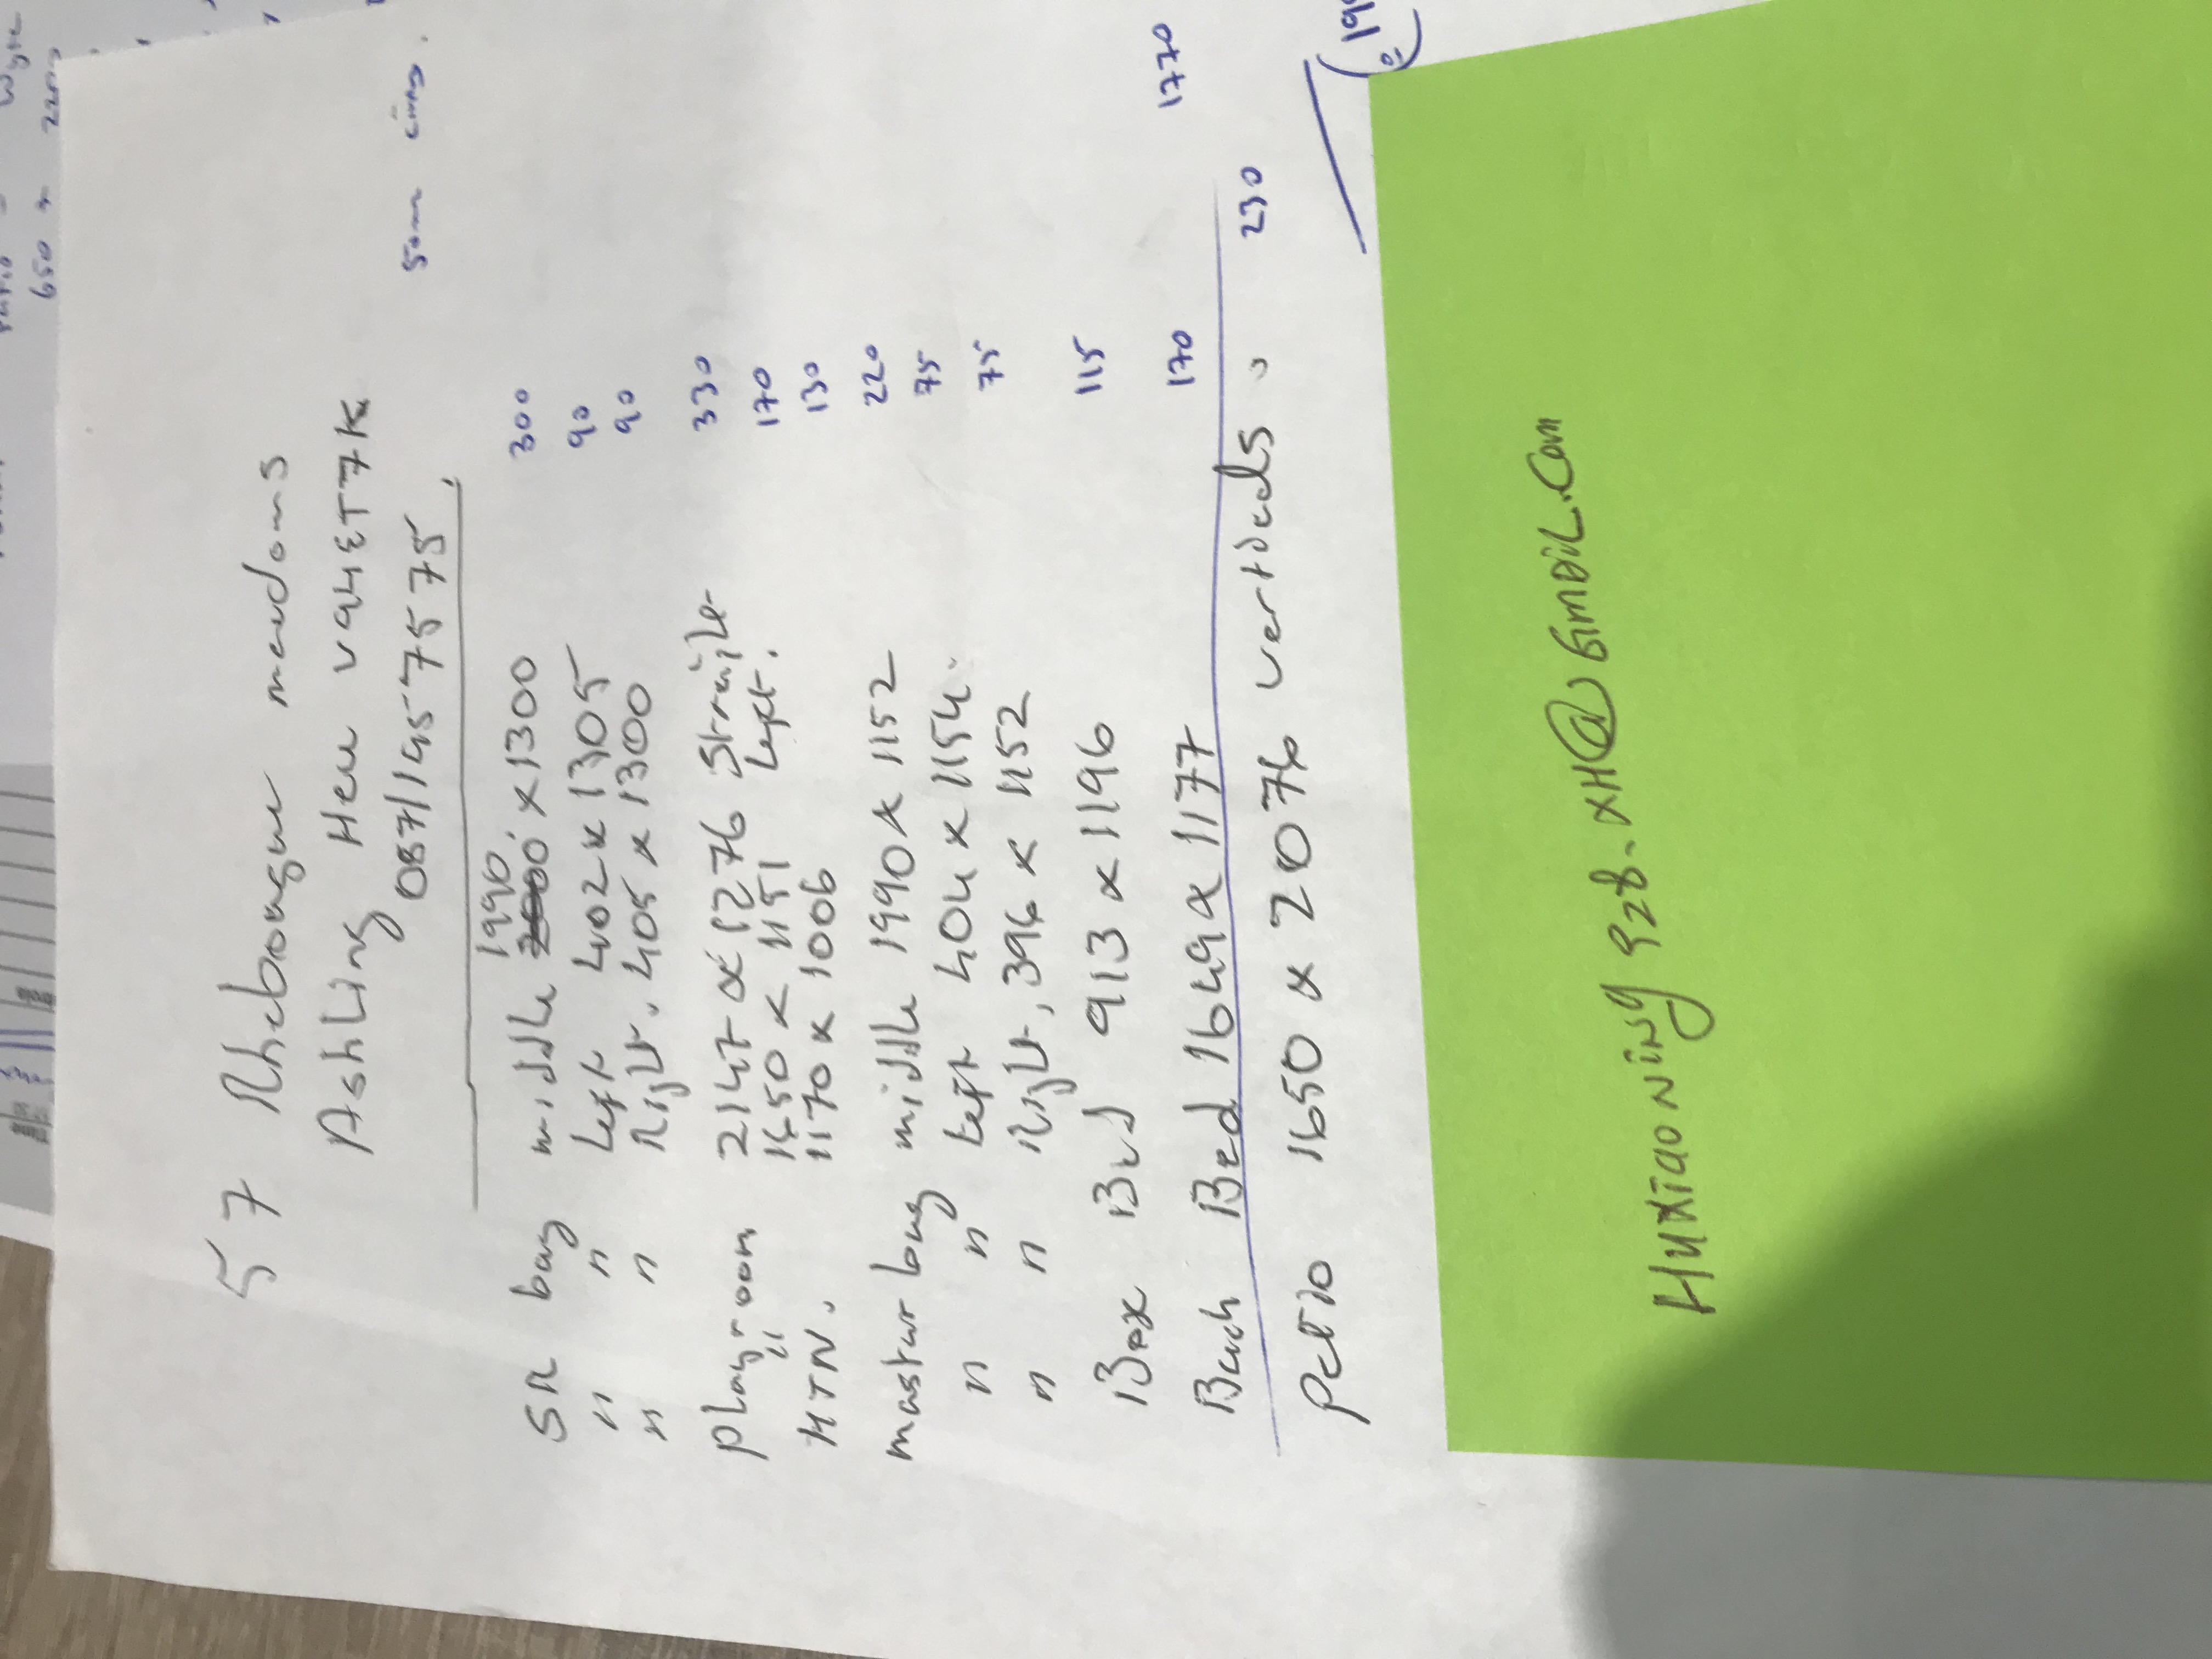 57 Rhebogue meadows
Ashling Heu V94ET7K
087/1457575.
50mm
SR bay middle 1990 x 1300 300
" " left 402 x 1305 90
" " Right. 405 x 1300 90
Playroom 2147 x 1276 330
" 1450 x 1151 Left. 170
KTN. 1170 x 1006 130
master bay middle 1990 x 1152 220
" " left 404 x 1154. 75
" " Right, 396 x 1152 75
Box Bed 913 x 1196 115
Back Bed 1649 x 1177 170 1770
Patio 1650 x 2076 verticals 230
HUXIAONING928.XH@GMAIL.COM
650